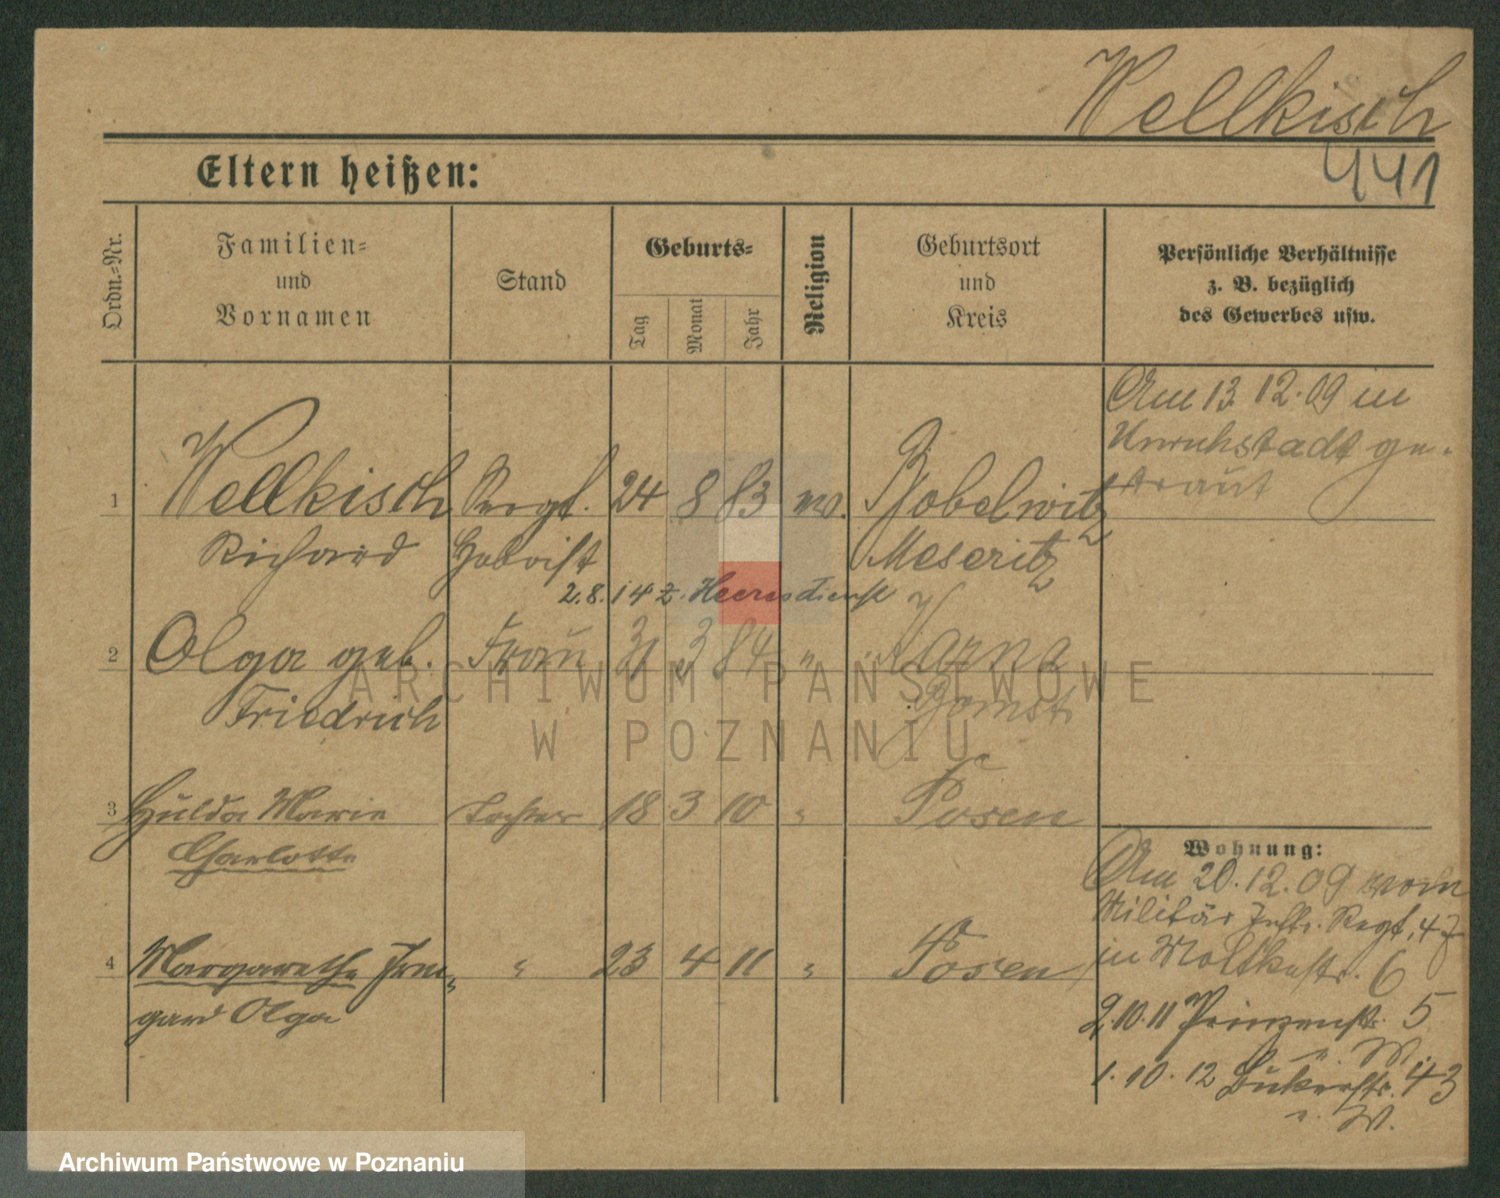 Wellkisch
441
Eltern heißen:
Ordn.-Nr.
Familien-
und
Vornamen
Stand
Geburts-
Tag
Monat
Jahr
Religion
Geburtsort
und
Kreis
Persönliche Verhältnisse
z. B. bezüglich
des Gewerbes usw.
Am 13. 12. 09 in
Unruhstadt ge-
traut
1 Wellkisch 24 8 83 Bobelwitz
Richard Hoboist Meseritz
2.8.14 z. Heeresdienst
2 Olga geb. Frau 31 3 84 " Karna
Friedrich Bomst
3 Hulda Marie Tochter 18 3 10 " Posen
Charlotte
4 Margarethe Irm- " 23 4 11 " Posen
gard Olga
Wohnung:
Am 20. 12. 09 vom
Militär Inftr. Regt. 47
in Moltkestr. 6
2.10.11 Prinzenstr. 5
1. 10. 12 43
ARCHIWUM PAŃSTWOWE
W POZNANIU
Archiwum Państwowe w Poznaniu